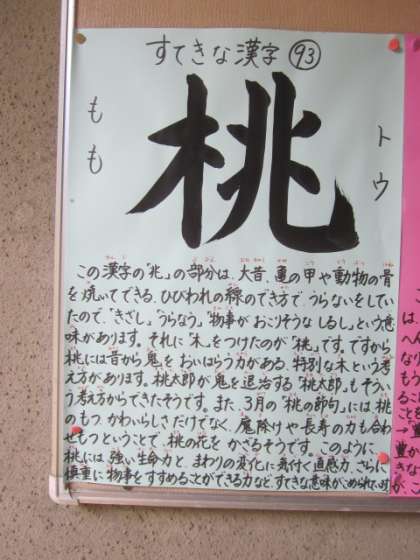 すてきな漢字 93
もも
桃
トウ
この漢字の「兆」の部分は、大昔、亀の甲や動物の骨
を焼いてできる、ひびわれの線のでき方で、うらないをしてい
たので、「きざし」「うらなう」「物事がおこりそうなしるし」という意
味があります。それに「木」をつけたのが「桃」です。ですから
桃には昔から鬼をおいはらう力がある、特別な木という考
え方があります。桃太郎が鬼を退治する「桃太郎」もそうい
う考えからできたそうです。また、3月の「桃の節句」には、桃
のもつ、かわいらしさだけでなく、魔除けや長寿の力も合わ
せもつということで、桃の花をかざるそうです。このように、
桃には、強い生命力と、まわりの変化に気付く直感力、さらに
慎重に物事をすすめることができる力など、すてきな意味がこめられています